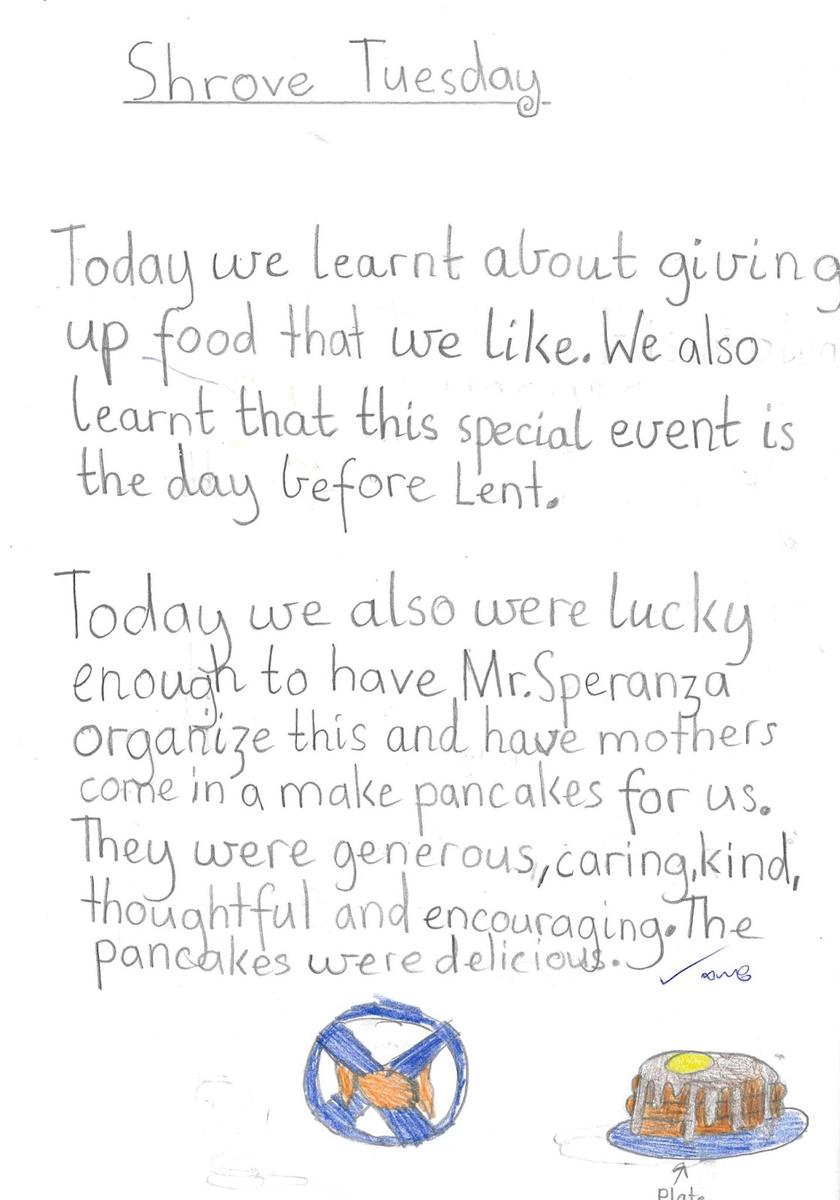 Shrove Tuesday
Today we learnt about giving
up food that we like. We also
learnt that this special event is
the day before Lent.
Today we also were lucky
enough to have Mr. Speranza
organize this and have mothers
come in a make pancakes for us.
They were generous, caring, kind,
thoughtful and encouraging. The
pancakes were delicious.
Plate